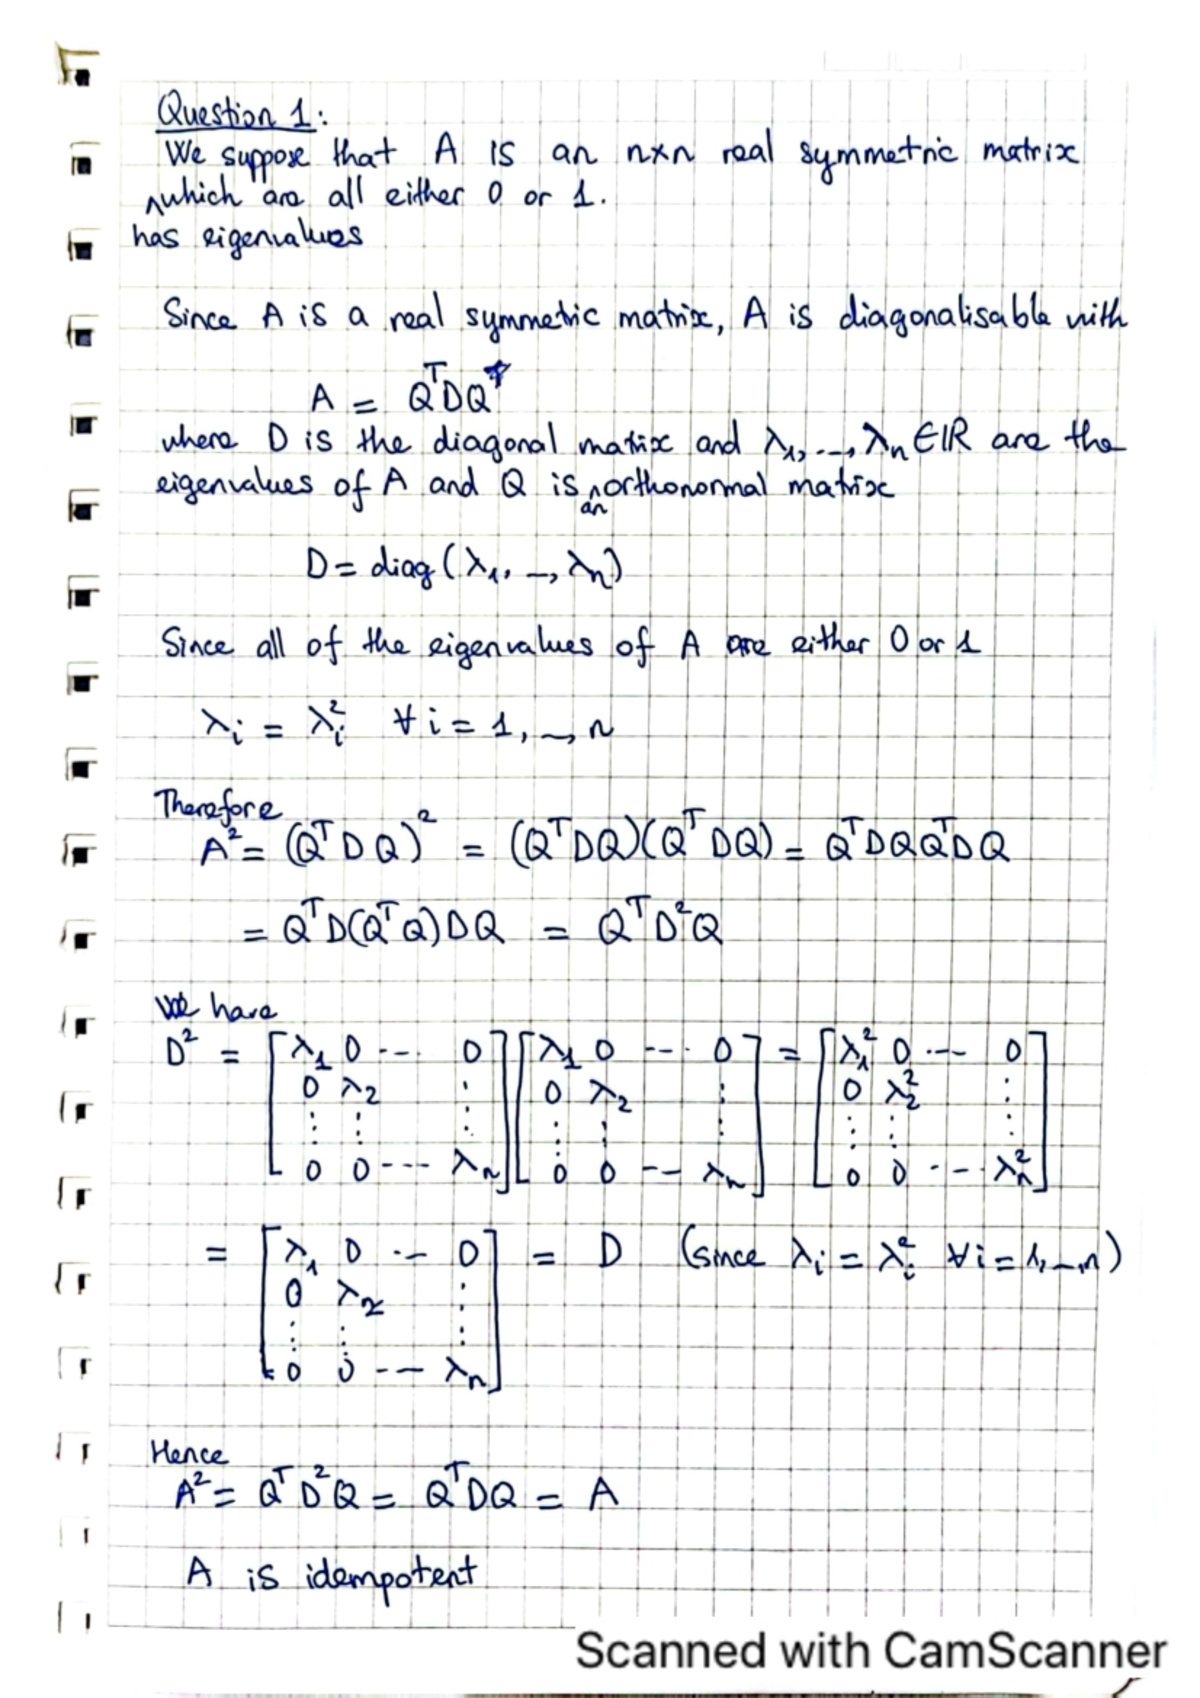 Question 1:
We suppose that A is an n×n real symmetric matrix
∧which are all either 0 or 1.
has eigenvalues
Since A is a real symmetric matrix, A is diagonalisable with
A = QᵀDQ
where D is the diagonal matrix and λ₁, ..., λₙ ∈ ℝ are the
eigenvalues of A and Q is ∧ orthonormal matrix
an
D = diag(λ₁, ..., λₙ)
Since all of the eigenvalues of A are either 0 or 1
λᵢ = λᵢ² ∀ i = 1, ..., n
Therefore
A² = (QᵀDQ)² = (QᵀDQ)(QᵀDQ) = QᵀDQQᵀDQ
= QᵀD(QᵀQ)DQ = QᵀD²Q
We have
D² = [λ₁ 0 --- 0] [λ₁ 0 --- 0] = [λ₁² 0 --- 0]
0 λ₂ ⋮ 0 λ₂ ⋮ 0 λ₂² ⋮
⋮ ⋮ ⋮ ⋮ ⋮ ⋮ ⋮ ⋮ ⋮
0 0 --- λₙ 0 0 --- λₙ 0 0 --- λₙ²
= [λ₁ 0 --- 0] = D (since λᵢ = λᵢ² ∀ i = 1, ..., n)
0 λ₂ ⋮
⋮ ⋮ ⋮
0 0 --- λₙ
Hence
A² = QᵀD²Q = QᵀDQ = A
A is idempotent
Scanned with CamScanner